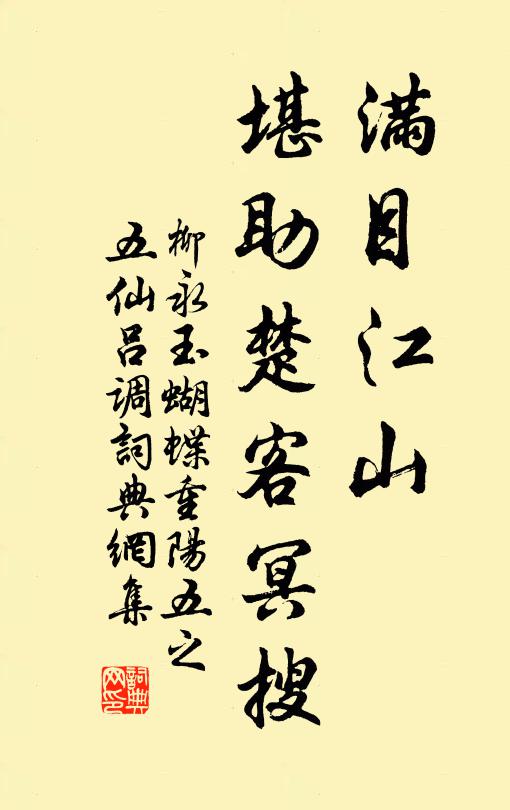 滿目江山
堪助楚客冥搜
柳永玉蝴蝶重陽五之
五仙吕調詞典網集
詞典网印